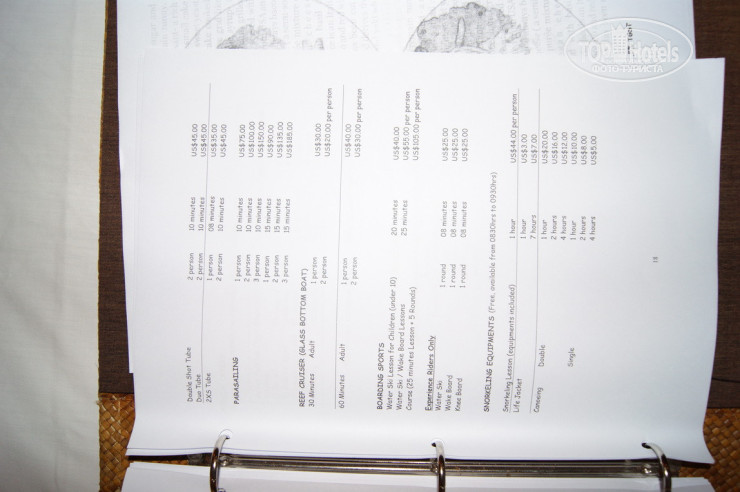 Double Shot Tube 2 person 10 minutes US$45.00
Duo Tube 2 person 10 minutes US$45.00
2XS Tube 1 person 08 minutes US$35.00
2 person 10 minutes US$45.00
PARASAILING 1 person 10 minutes US$75.00
2 person 10 minutes US$100.00
3 person 10 minutes US$150.00
1 person 15 minutes US$90.00
2 person 15 minutes US$135.00
3 person 15 minutes US$185.00
REEF CRUISER (GLASS BOTTOM BOAT)
30 Minutes Adult 1 person US$30.00
2 person US$20.00 per person
60 Minutes Adult 1 person US$40.00
2 person US$30.00 per person
BOARDING SPORTS
Water Ski Lesson for Children (under 10) 20 minutes US$40.00
Water Ski / Wake Board Lessons 25 minutes US$55.00 per person
Course (25 minutes Lesson + 5 Rounds) US$105.00 per person
Experience Riders Only
Water Ski 1 round 08 minutes US$25.00
Wake Board 1 round 08 minutes US$25.00
Knee Board 1 round 08 minutes US$25.00
SNORKELING EQUIPMENTS (Free, available from 0830hrs to 0930hrs)
Snorkeling Lesson (equipments included) 1 hour US$44.00 per person
Life Jacket 1 hour US$3.00
7 hours US$7.00
Canoeing Double 1 hour US$20.00
2 hours US$16.00
4 hours US$12.00
Single 1 hour US$10.00
2 hours US$8.00
4 hours US$5.00
18
TOP Hotels
ФОТО ТУРИСТА